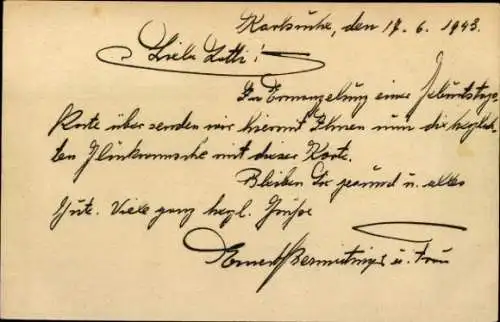 Karlsruhe, den 17. 6. 1943.
Liebe Lotti!
In Ermangelung einer Geburtstags
Karte übersenden wir hiermit Ihnen nun die herzlich
ten Glückwünsche mit dieser Karte.
Bleiben Sie gesund u. alles
Gute. Viele ganz herzl. Grüße
u. Frau